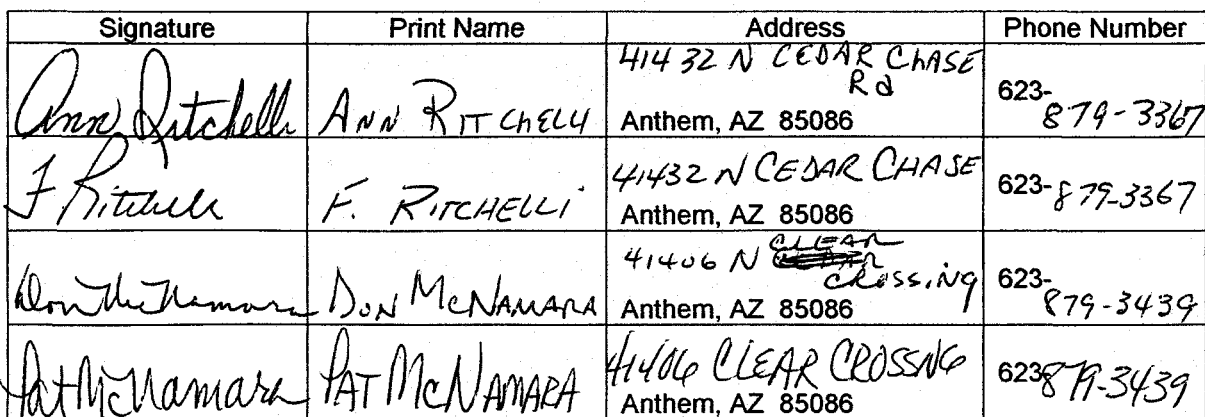 Signature Print Name Address Phone Number
Ann Ritchelli ANN RITCHELLI 41432 N CEDAR CHASE
Rd
Anthem, AZ 85086 623-879-3367
F Ritchelli F. RITCHELLI 41432 N CEDAR CHASE
Anthem, AZ 85086 623-879-3367
Don McNamara DON McNAMARA 41406 N CLEAR
CROSSING
Anthem, AZ 85086 623-879-3439
Pat McNamara PAT McNAMARA 41406 CLEAR CROSSNG
Anthem, AZ 85086 623-879-3439